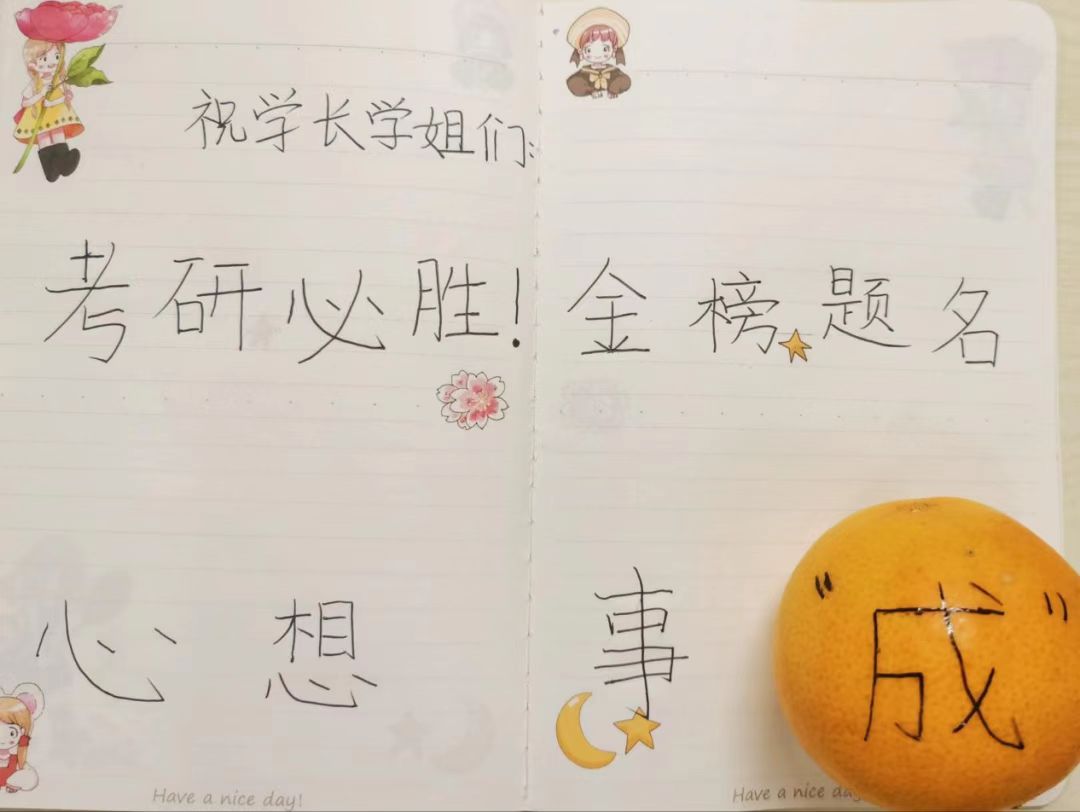 祝学长学姐们:
考研必胜! 金榜题名
心想事"成"
Have a nice day! Have a nice day